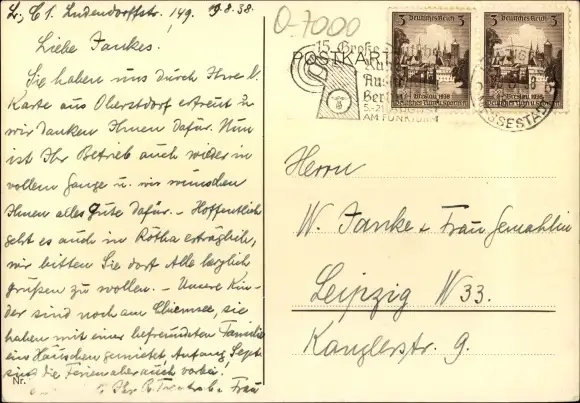 Lr. C 1. Ludendorffstr. 149. 19.8.38.
Liebe Jankes.
Sie haben uns durch Ihre l.
Karte aus Oberstdorf erfreut u.
wir danken Ihnen dafür. Nun
ist Ihr Betrieb auch wieder in
vollem Gange u. wir wünschen
Ihnen alles Gute dafür. – Hoffentlich
geht es auch in Rötha erträglich,
wir bitten Sie dort Alle herzlich
grüßen zu wollen. – Unsere Kin-
der sind noch am Chiemsee, sie
haben mit einer befreundeten Familie
ein Häuschen gemietet, Anfang Sept.
sind die Ferien aber auch vorbei.
Ihr u. Frau
Nr.
O-7000
POSTKARTE
15. Große
Berlin
5.-21. AUGUST
AM FUNKTURM
3 Deutsches Reich 3
Breslau 1938
3 Deutsches Reich
Breslau 1938
MESSESTADT
Herrn
W. Janke u. Frau Gemahlin
Leipzig W 33.
Kanzlerstr. 9.